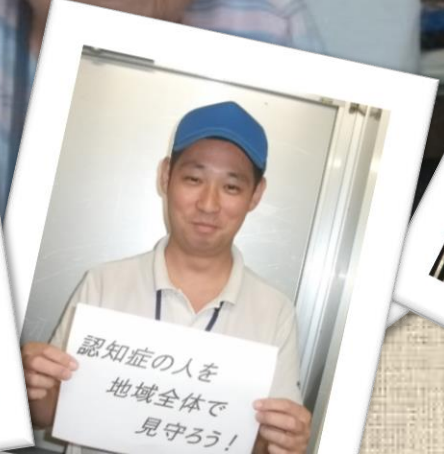 認知症の人を
地域全体で
見守ろう!